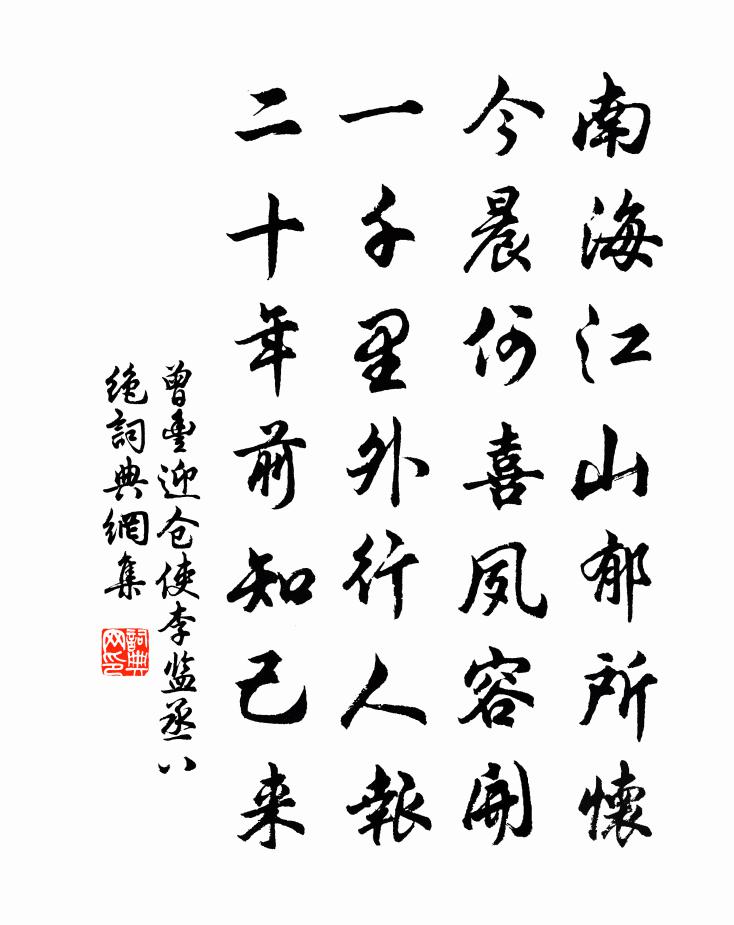 南海江山郁所懷
今晨何喜夙容開
一千里外行人報
二十年前知己来
曾豊迎仓使李监丞八
绝詞典網集
詞典网印